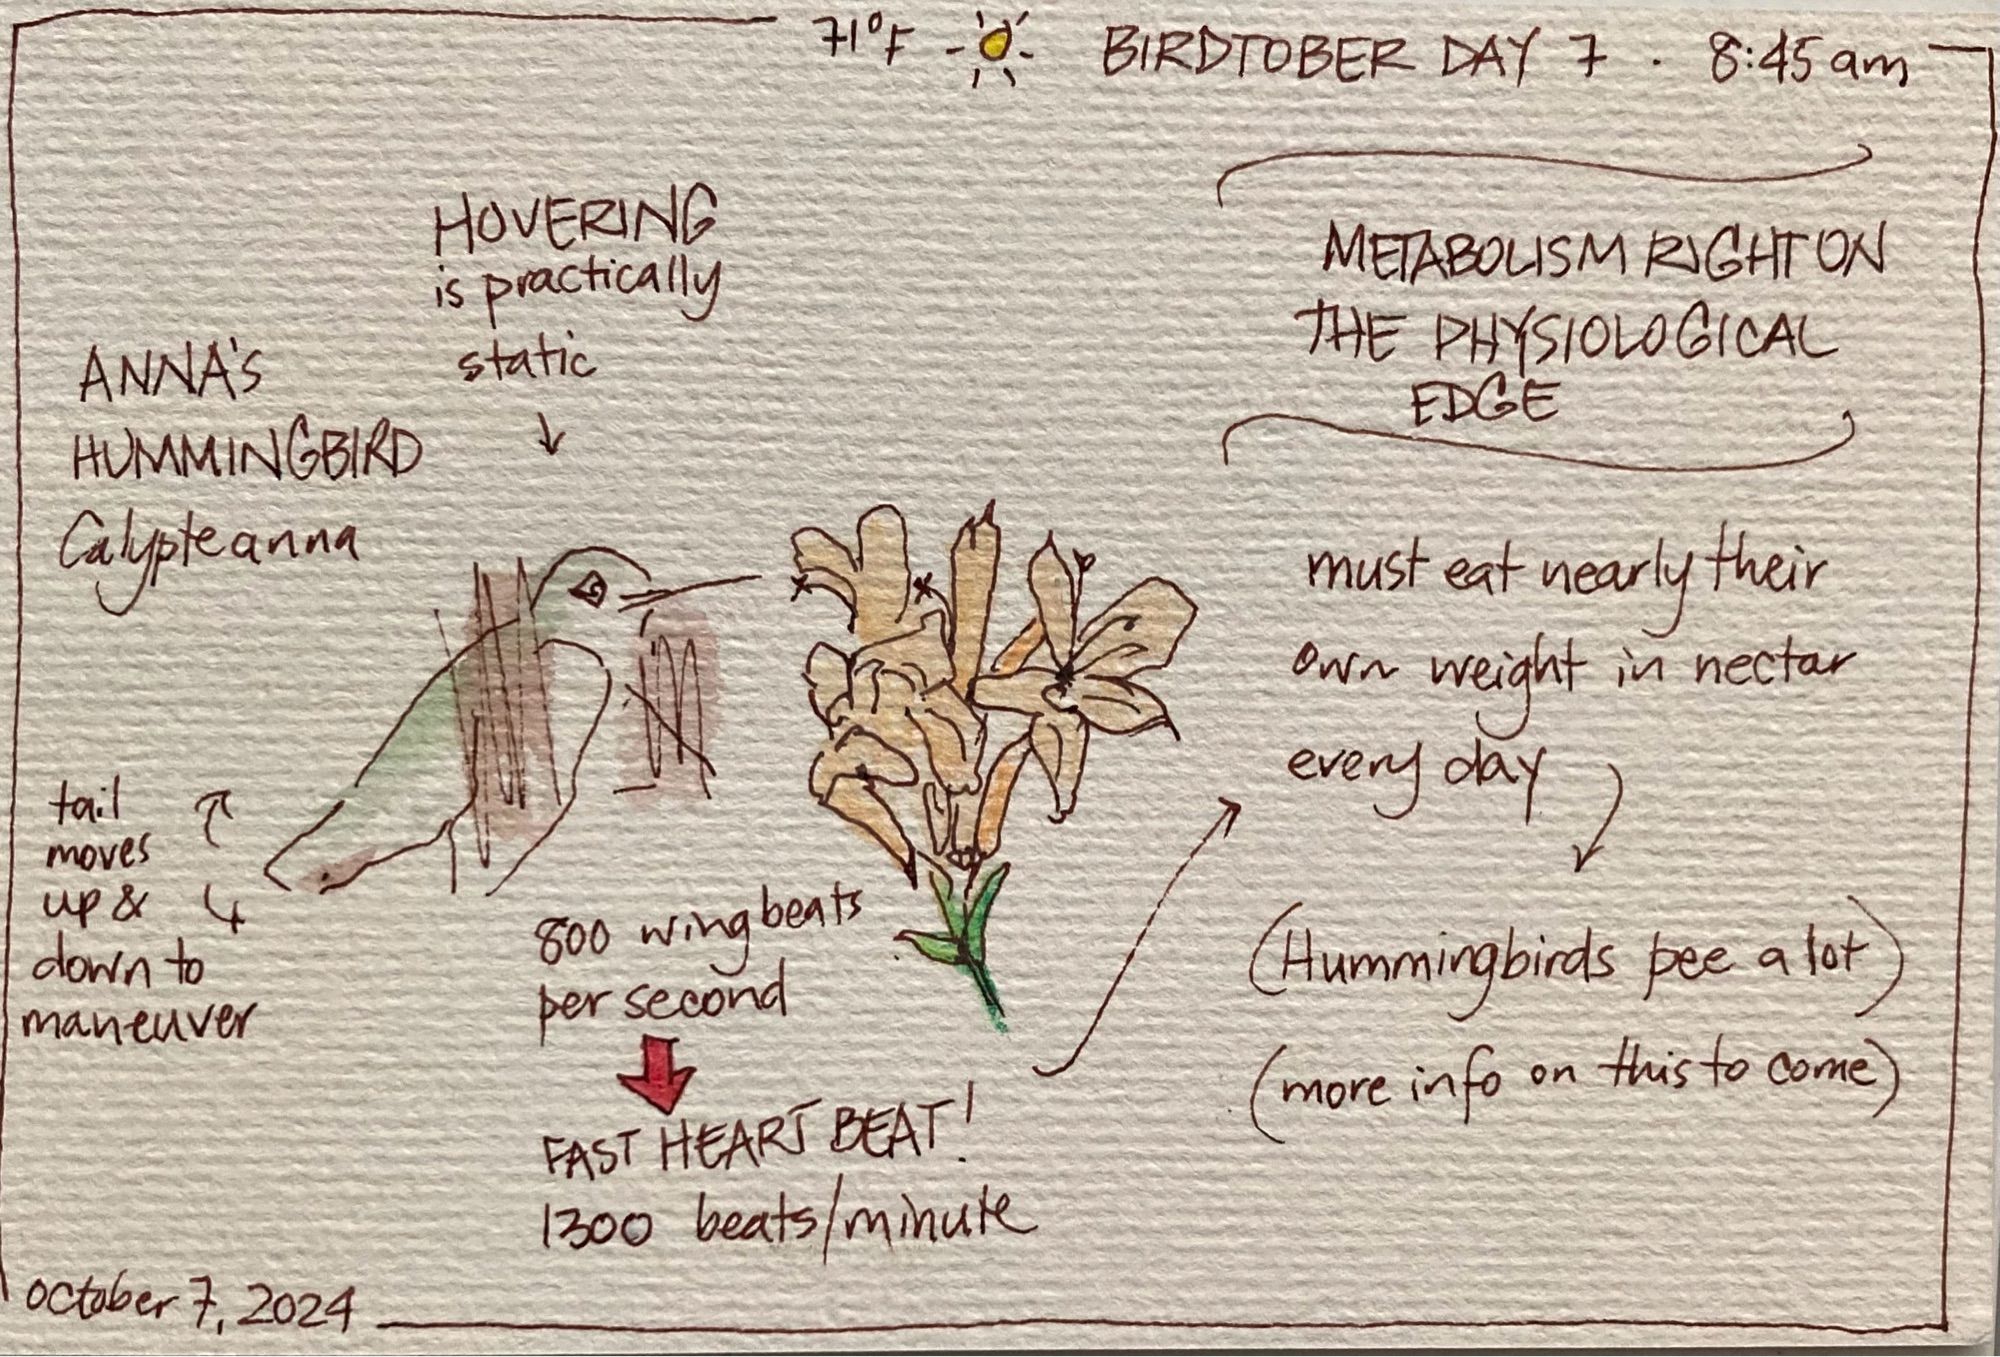 71°F BIRDTOBER DAY 7 · 8:45 am
HOVERING
is practically
static
ANNA'S
HUMMINGBIRD
Calypte anna
METABOLISM RIGHT ON
THE PHYSIOLOGICAL
EDGE
must eat nearly their
own weight in nectar
every day
(Hummingbirds pee a lot)
(more info on this to come)
tail
moves
up &
down to
maneuver
800 wingbeats
per second
FAST HEART BEAT!
1300 beats/minute
October 7, 2024